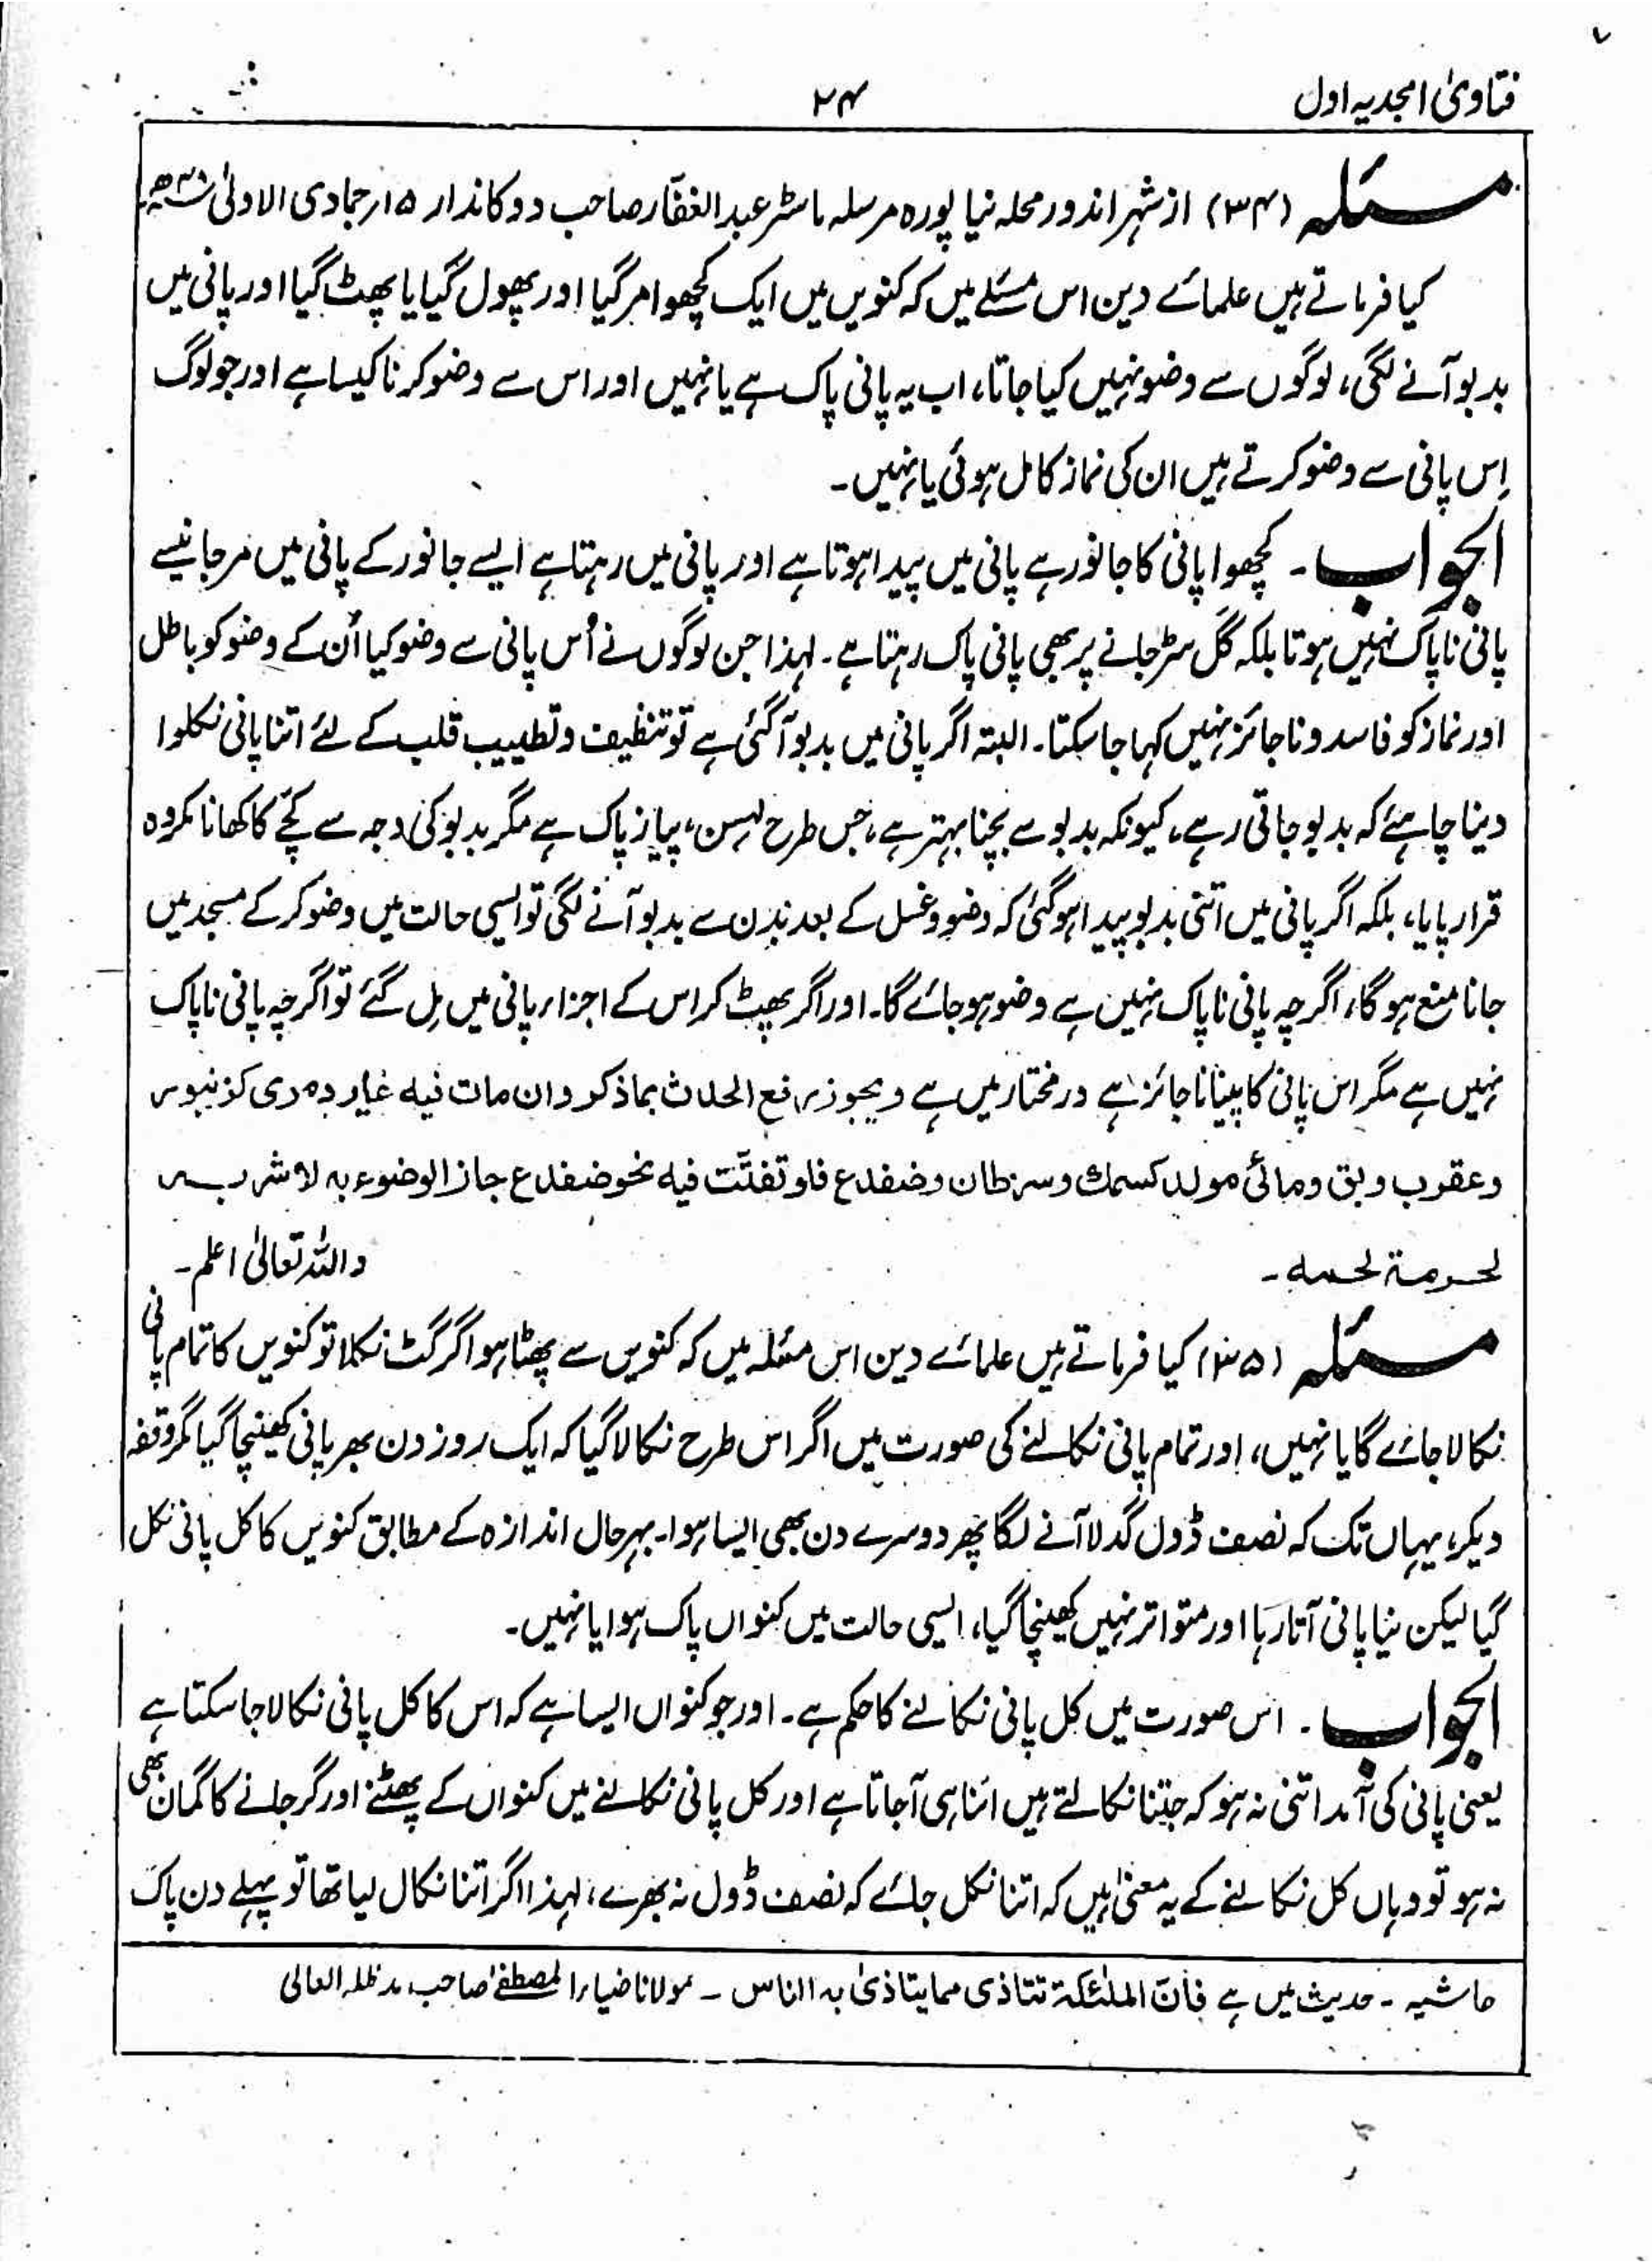 فتاویٰ امجدیہ اول
۲۴
مسئلہ (۳۴) از شہر اندور محلہ نیا پورہ مرسلہ ماسٹر عبدالغفار صاحب دوکاندار ۱۵ر جمادی الاولیٰ
کیا فرماتے ہیں علمائے دین اس مسئلے میں کہ کنویں میں ایک کچھوا مر گیا اور پھول گیا یا پھٹ گیا اور پانی میں
بدبو آنے لگی، لوگوں سے وضو نہیں کیا جاتا، اب یہ پانی پاک ہے یا نہیں اور اس سے وضو کرنا کیسا ہے اور جو لوگ
اِس پانی سے وضو کرتے ہیں ان کی نماز کامل ہوئی یا نہیں۔
الجواب۔ کچھوا پانی کا جانور ہے پانی میں پیدا ہوتا ہے اور پانی میں رہتا ہے ایسے جانور کے پانی میں مرجانیسے
پانی ناپاک نہیں ہوتا بلکہ گل سڑ جانے پر بھی پانی پاک رہتا ہے۔ لہذا جن لوگوں نے اُس پانی سے وضو کیا اُن کے وضو کو باطل
اور نماز کو فاسد و ناجائز نہیں کہا جاسکتا۔ البتہ اگر پانی میں بدبو آگئی ہے تو تنظیف و تطییب قلب کے لئے اتنا پانی نکلوا
دینا چاہئے کہ بدبو جاتی رہے، کیونکہ بدبو سے بچنا بہتر ہے، جس طرح لہسن، پیاز پاک ہے مگر بدبو کی وجہ سے کچّے کا کھانا مکروہ
قرار پایا، بلکہ اگر پانی میں اتنی بدبو پیدا ہوگئی کہ وضو و غسل کے بعد بدن سے بدبو آنے لگی تو ایسی حالت میں وضو کرکے مسجد میں
جانا منع ہوگا، اگرچہ پانی ناپاک نہیں ہے وضو ہو جائے گا۔ اور اگر پھٹ کر اس کے اجزاء پانی میں مِل گئے تو اگرچہ پانی ناپاک
نہیں ہے مگر اس پانی کا پینا ناجائز ہے درمختار میں ہے ویجوز رفع الحدث بماذکر وان مات فیه غیر دموی کزنبور
وعقرب وبق ومائی مولد کسمك وسرطان وضفدع فلو تفتّت فیه نحو ضفدع جاز الوضوء به لا شربـه
لحرمة لحمه۔ واللہ تعالیٰ اعلم۔
مسئلہ (۳۵) کیا فرماتے ہیں علمائے دین اس مسئلہ میں کہ کنویں سے پھٹا ہوا گرگٹ نکلا تو کنویں کا تمام پانی
نکالا جائے گا یا نہیں، اور تمام پانی نکالنے کی صورت میں اگر اس طرح نکالا گیا کہ ایک روز دن بھر پانی کھینچا گیا مگر وقفہ
دیکر، یہاں تک کہ نصف ڈول گدلا آنے لگا پھر دوسرے دن بھی ایسا ہوا۔ بہرحال اندازہ کے مطابق کنویں کا کل پانی نکل
گیا لیکن نیا پانی آتا رہا اور متواتر نہیں کھینچا گیا، ایسی حالت میں کنواں پاک ہوا یا نہیں۔
الجواب۔ اس صورت میں کل پانی نکالنے کا حکم ہے۔ اور جو کنواں ایسا ہے کہ اس کا کل پانی نکالا جاسکتا ہے
یعنی پانی کی آمد اتنی نہ ہو کہ جتنا نکالتے ہیں اتنا ہی آجاتا ہے اور کل پانی نکالنے میں کنواں کے پھٹنے اور گرجانے کا گمان بھی
نہ ہو تو وہاں کل نکالنے کے یہ معنیٰ ہیں کہ اتنا نکل جائے کہ نصف ڈول نہ بھرے، لہذا اگر اتنا نکال لیا تھا تو پہلے دن پاک
حاشیہ ۔ حدیث میں ہے فانّ الملٰئکة تتاذی مما یتاذیٰ به الناس ۔ مولانا ضیاء المصطفےٰ صاحب مدظلہ العالی